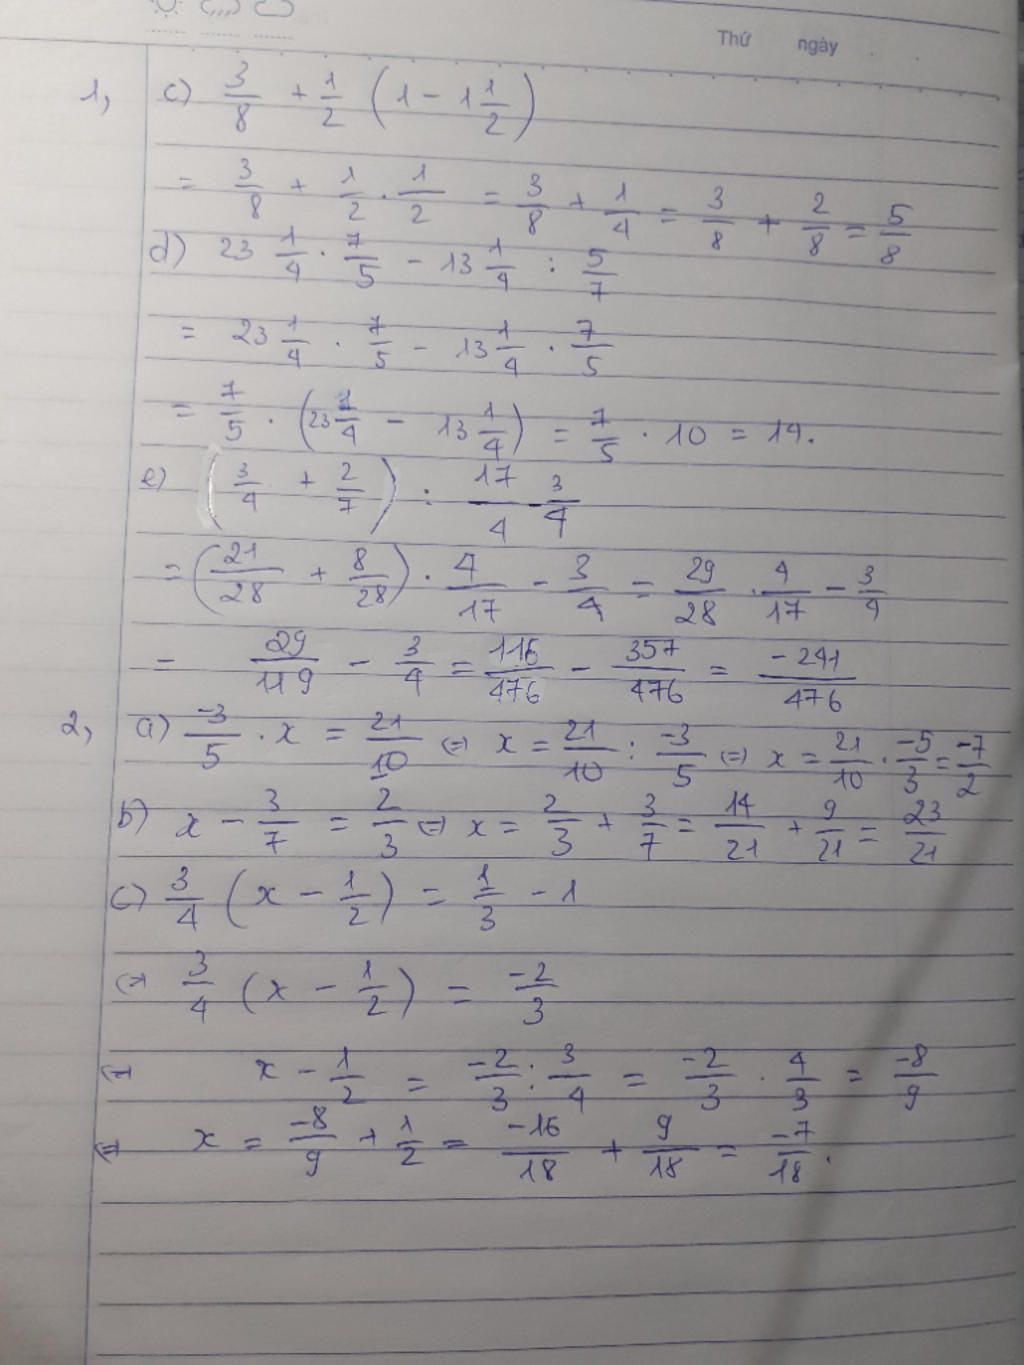 Thứ ngày
1, c) 3/8 + 1/2 (1 - 1 1/2)
= 3/8 + 1/2 . 1/2 = 3/8 + 1/4 = 3/8 + 2/8 = 5/8
d) 23 1/4 . 7/5 - 13 1/4 : 5/7
= 23 1/4 . 7/5 - 13 1/4 . 7/5
= 7/5 . (23 1/4 - 13 1/4) = 7/5 . 10 = 14.
e) (3/4 + 2/7) : 17/4 - 3/4
= (21/28 + 8/28) . 4/17 - 3/4 = 29/28 . 4/17 - 3/4
= 29/119 - 3/4 = 116/476 - 357/476 = -241/476
2, a) -3/5 . x = 21/10 (=) x = 21/10 : -3/5 (=) x = 21/10 . -5/3 = -7/2
b) x - 3/7 = 2/3 (=) x = 2/3 + 3/7 = 14/21 + 9/21 = 23/21
c) 3/4 (x - 1/2) = 1/3 - 1
(=) 3/4 (x - 1/2) = -2/3
(=) x - 1/2 = -2/3 : 3/4 = -2/3 . 4/3 = -8/9
(=) x = -8/9 + 1/2 = -16/18 + 9/18 = -7/18.